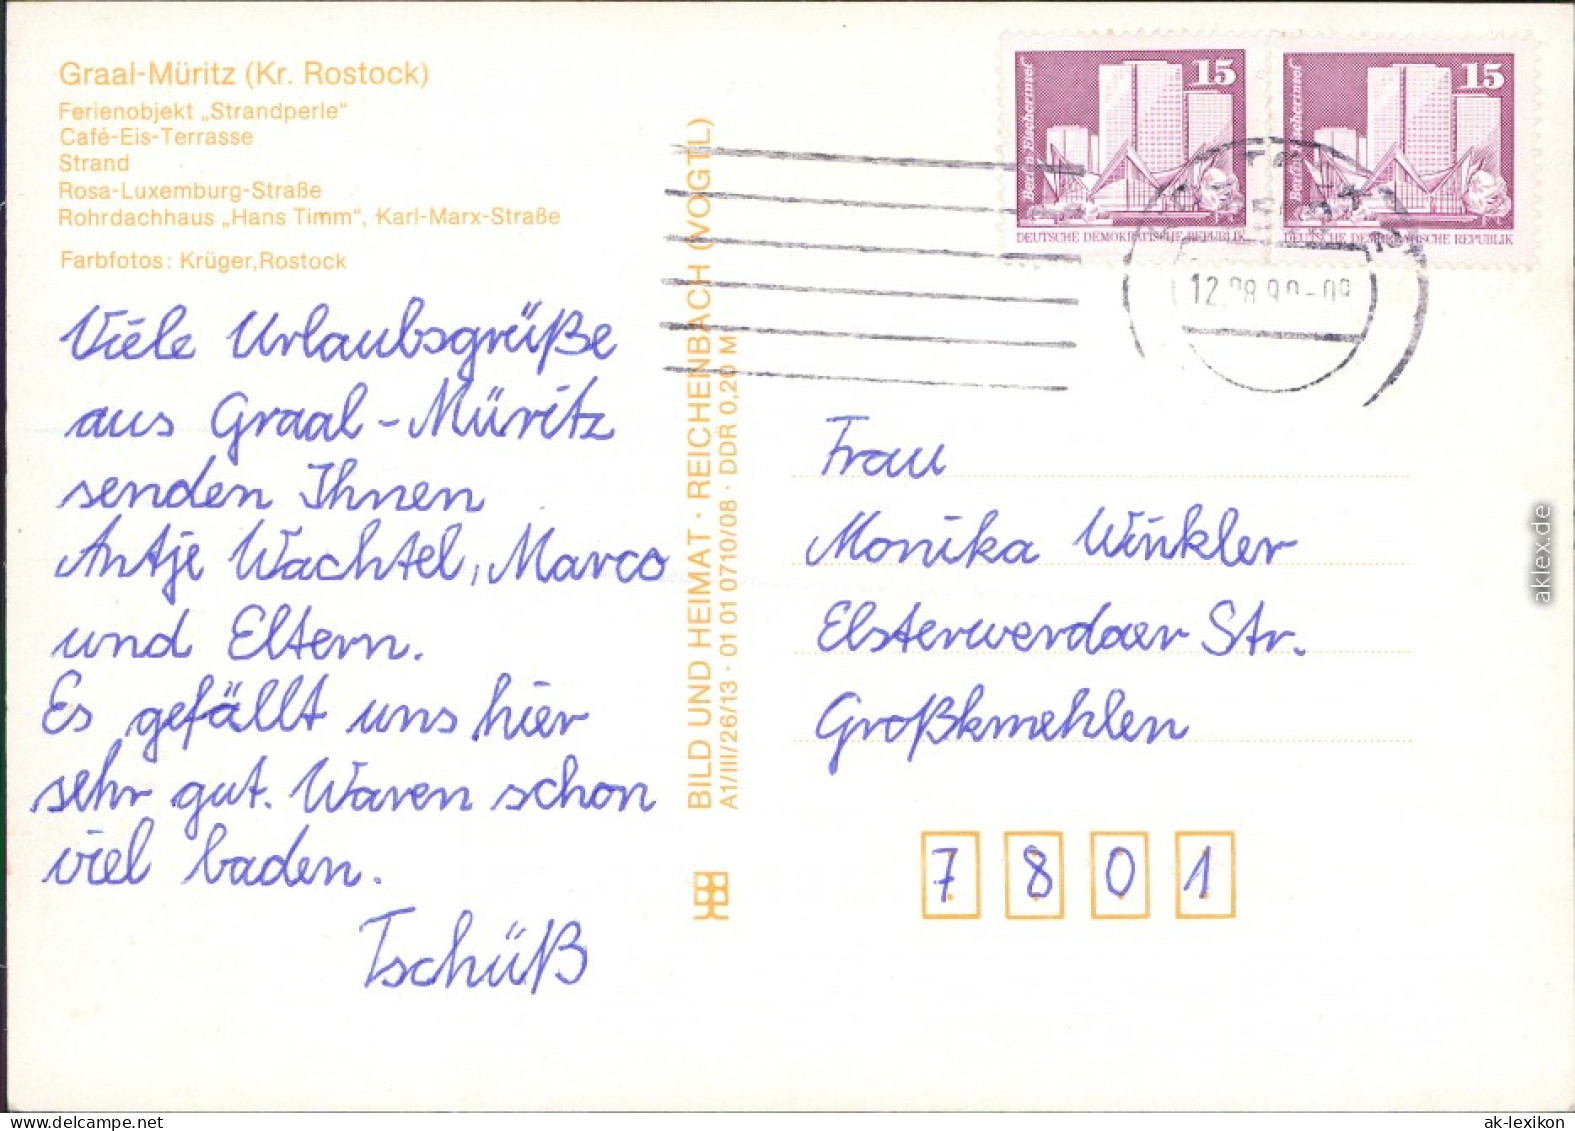 Graal-Müritz (Kr. Rostock)
Ferienobjekt „Strandperle“
Café-Eis-Terrasse
Strand
Rosa-Luxemburg-Straße
Rohrdachhaus „Hans Timm“, Karl-Marx-Straße
Farbfotos: Krüger, Rostock
Viele Urlaubsgrüße
aus Graal-Müritz
senden Ihnen
Antje Wachtel, Marco
und Eltern.
Es gefällt uns hier
sehr gut. Waren schon
viel baden.
Tschüß
BILD UND HEIMAT · REICHENBACH (VOGTL)
A1/III/26/13 · 01 01 0710/08 · DDR 0,20 M
Berlin-Fischerinsel
15
DEUTSCHE DEMOKRATISCHE REPUBLIK
Berlin-Fischerinsel
15
DEUTSCHE DEMOKRATISCHE REPUBLIK
Frau
Monika Winkler
Elsterwerdaer Str.
Großkmehlen
7 8 0 1
aklex.de
ak-lexikon